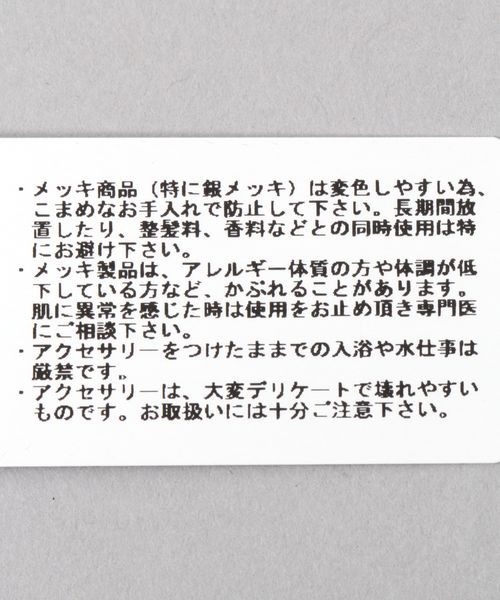 ・メッキ商品（特に銀メッキ）は変色しやすい為、
こまめなお手入れで防止して下さい。長期間放
置したり、整髪料、香料などとの同時使用は特
にお避け下さい。
・メッキ製品は、アレルギー体質の方や体調が低
下している方など、かぶれることがあります。
肌に異常を感じた時は使用をお止め頂き専門医
にご相談下さい。
・アクセサリーをつけたままでの入浴や水仕事は
厳禁です。
・アクセサリーは、大変デリケートで壊れやすい
ものです。お取扱いには十分ご注意下さい。